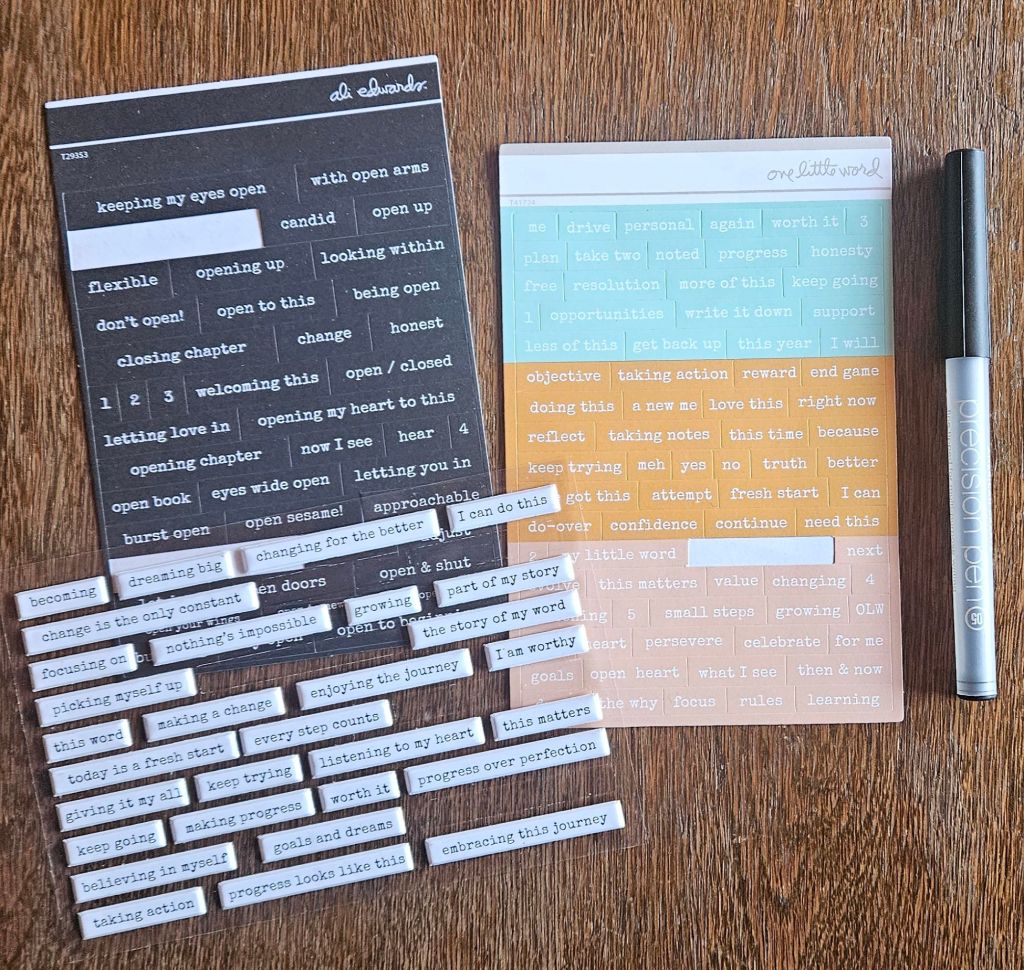 ali edwards.
T29353
keeping my eyes open with open arms
candid open up
flexible opening up looking within
don't open! open to this being open
closing chapter change honest
1 2 3 welcoming this open / closed
letting love in opening my heart to this
opening chapter now I see hear 4
open book eyes wide open letting you in
burst open open sesame! approachable
open & shut
doors
open your wings
open to
one little word
T41724
me drive personal again worth it 3
plan take two noted progress honesty
free resolution more of this keep going
1 opportunities write it down support
less of this get back up this year I will
objective taking action reward end game
doing this a new me love this right now
reflect taking notes this time because
keep trying meh yes no truth better
got this attempt fresh start I can
do-over confidence continue need this
2 my little word next
evolve this matters value changing 4
5 small steps growing OLW
heart persevere celebrate for me
goals open heart what I see then & now
the why focus rules learning
precision pen 05
becoming dreaming big changing for the better I can do this
change is the only constant growing part of my story
focusing on nothing's impossible the story of my word
picking myself up enjoying the journey I am worthy
this word making a change
today is a fresh start every step counts this matters
giving it my all keep trying listening to my heart
keep going making progress worth it progress over perfection
believing in myself goals and dreams
taking action progress looks like this embracing this journey